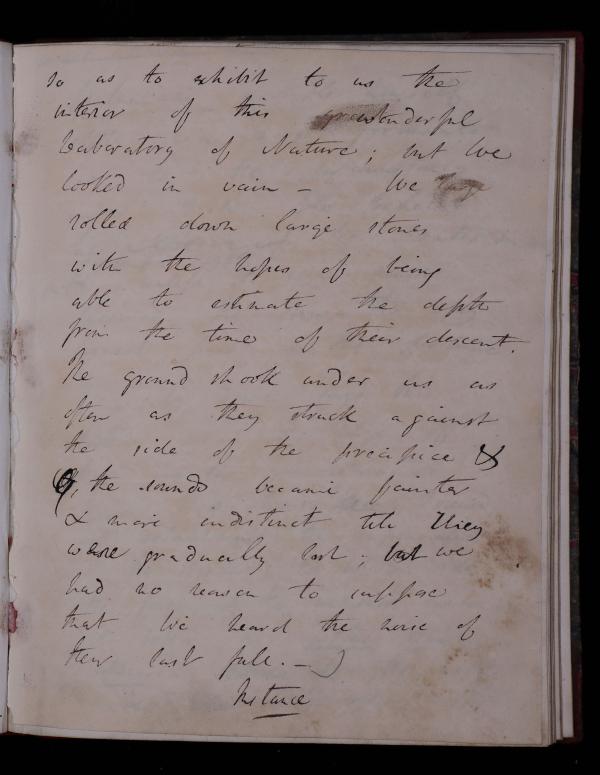 so as to exhibit to us the
interior of this wonderful
Laboratory of Nature; but We
looked in vain – We
rolled down large stones
with the hopes of being
able to estimate the depth
from the time of their descent.
The ground shook under us as
often as they struck against
the side of the precipice &
the sounds became fainter
& more indistinct till they
were gradually lost; but we
had no reason to suppose
that We heard the noise of
their last fall. – )
Instance